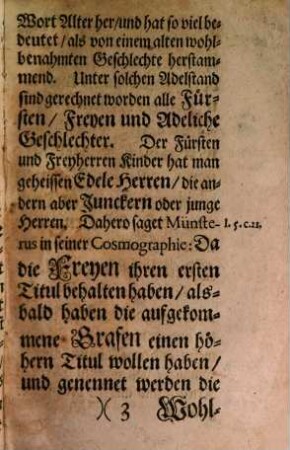 Wort Alter her/und hat so viel be-
deutet/als von einem alten wohl-
benahmten Geschlechte herstam-
mend. Unter solchen Adelstand
sind gerechnet worden alle Für-
sten/ Freyen und Adeliche
Geschlechter. Der Fürsten
und Freyherren Kinder hat man
geheissen Edele Herren/ die an-
dern aber Junckern oder junge
Herren. Dahero saget Münste- l. 5. c. 21.
rus in seiner Cosmographie: Da
die Freyen ihren ersten
Titul behalten haben/ als-
bald haben die aufgekom-
mene Grafen einen hö-
hern Titul wollen haben/
und genennet werden die
)( 3 Wohl-